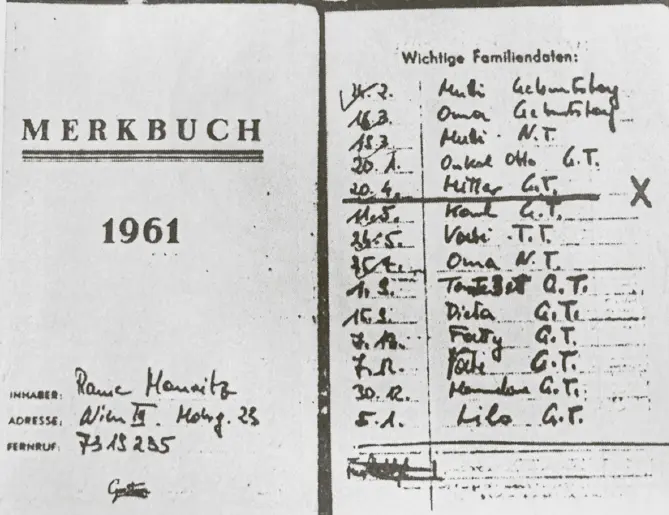 MERKBUCH
1961
INHABER:
ADRESSE: Wien IV. 23
FERNRUF: 7319295
Wichtige Familiendaten:
24.2. Mutti Geburtstag
16.3. Oma Geburtstag
18.3. Mutti N.T.
20.1. Onkel Otto G.T.
20.4. Hitler G.T. X
11.5. Karl G.T.
24.5. Vati T.T.
Oma N.T.
1.9. Tante G.T.
15.9. Dieta G.T.
7.12. Fatty G.T.
7.12. G.T.
30.12. G.T.
5.1. Lilo G.T.